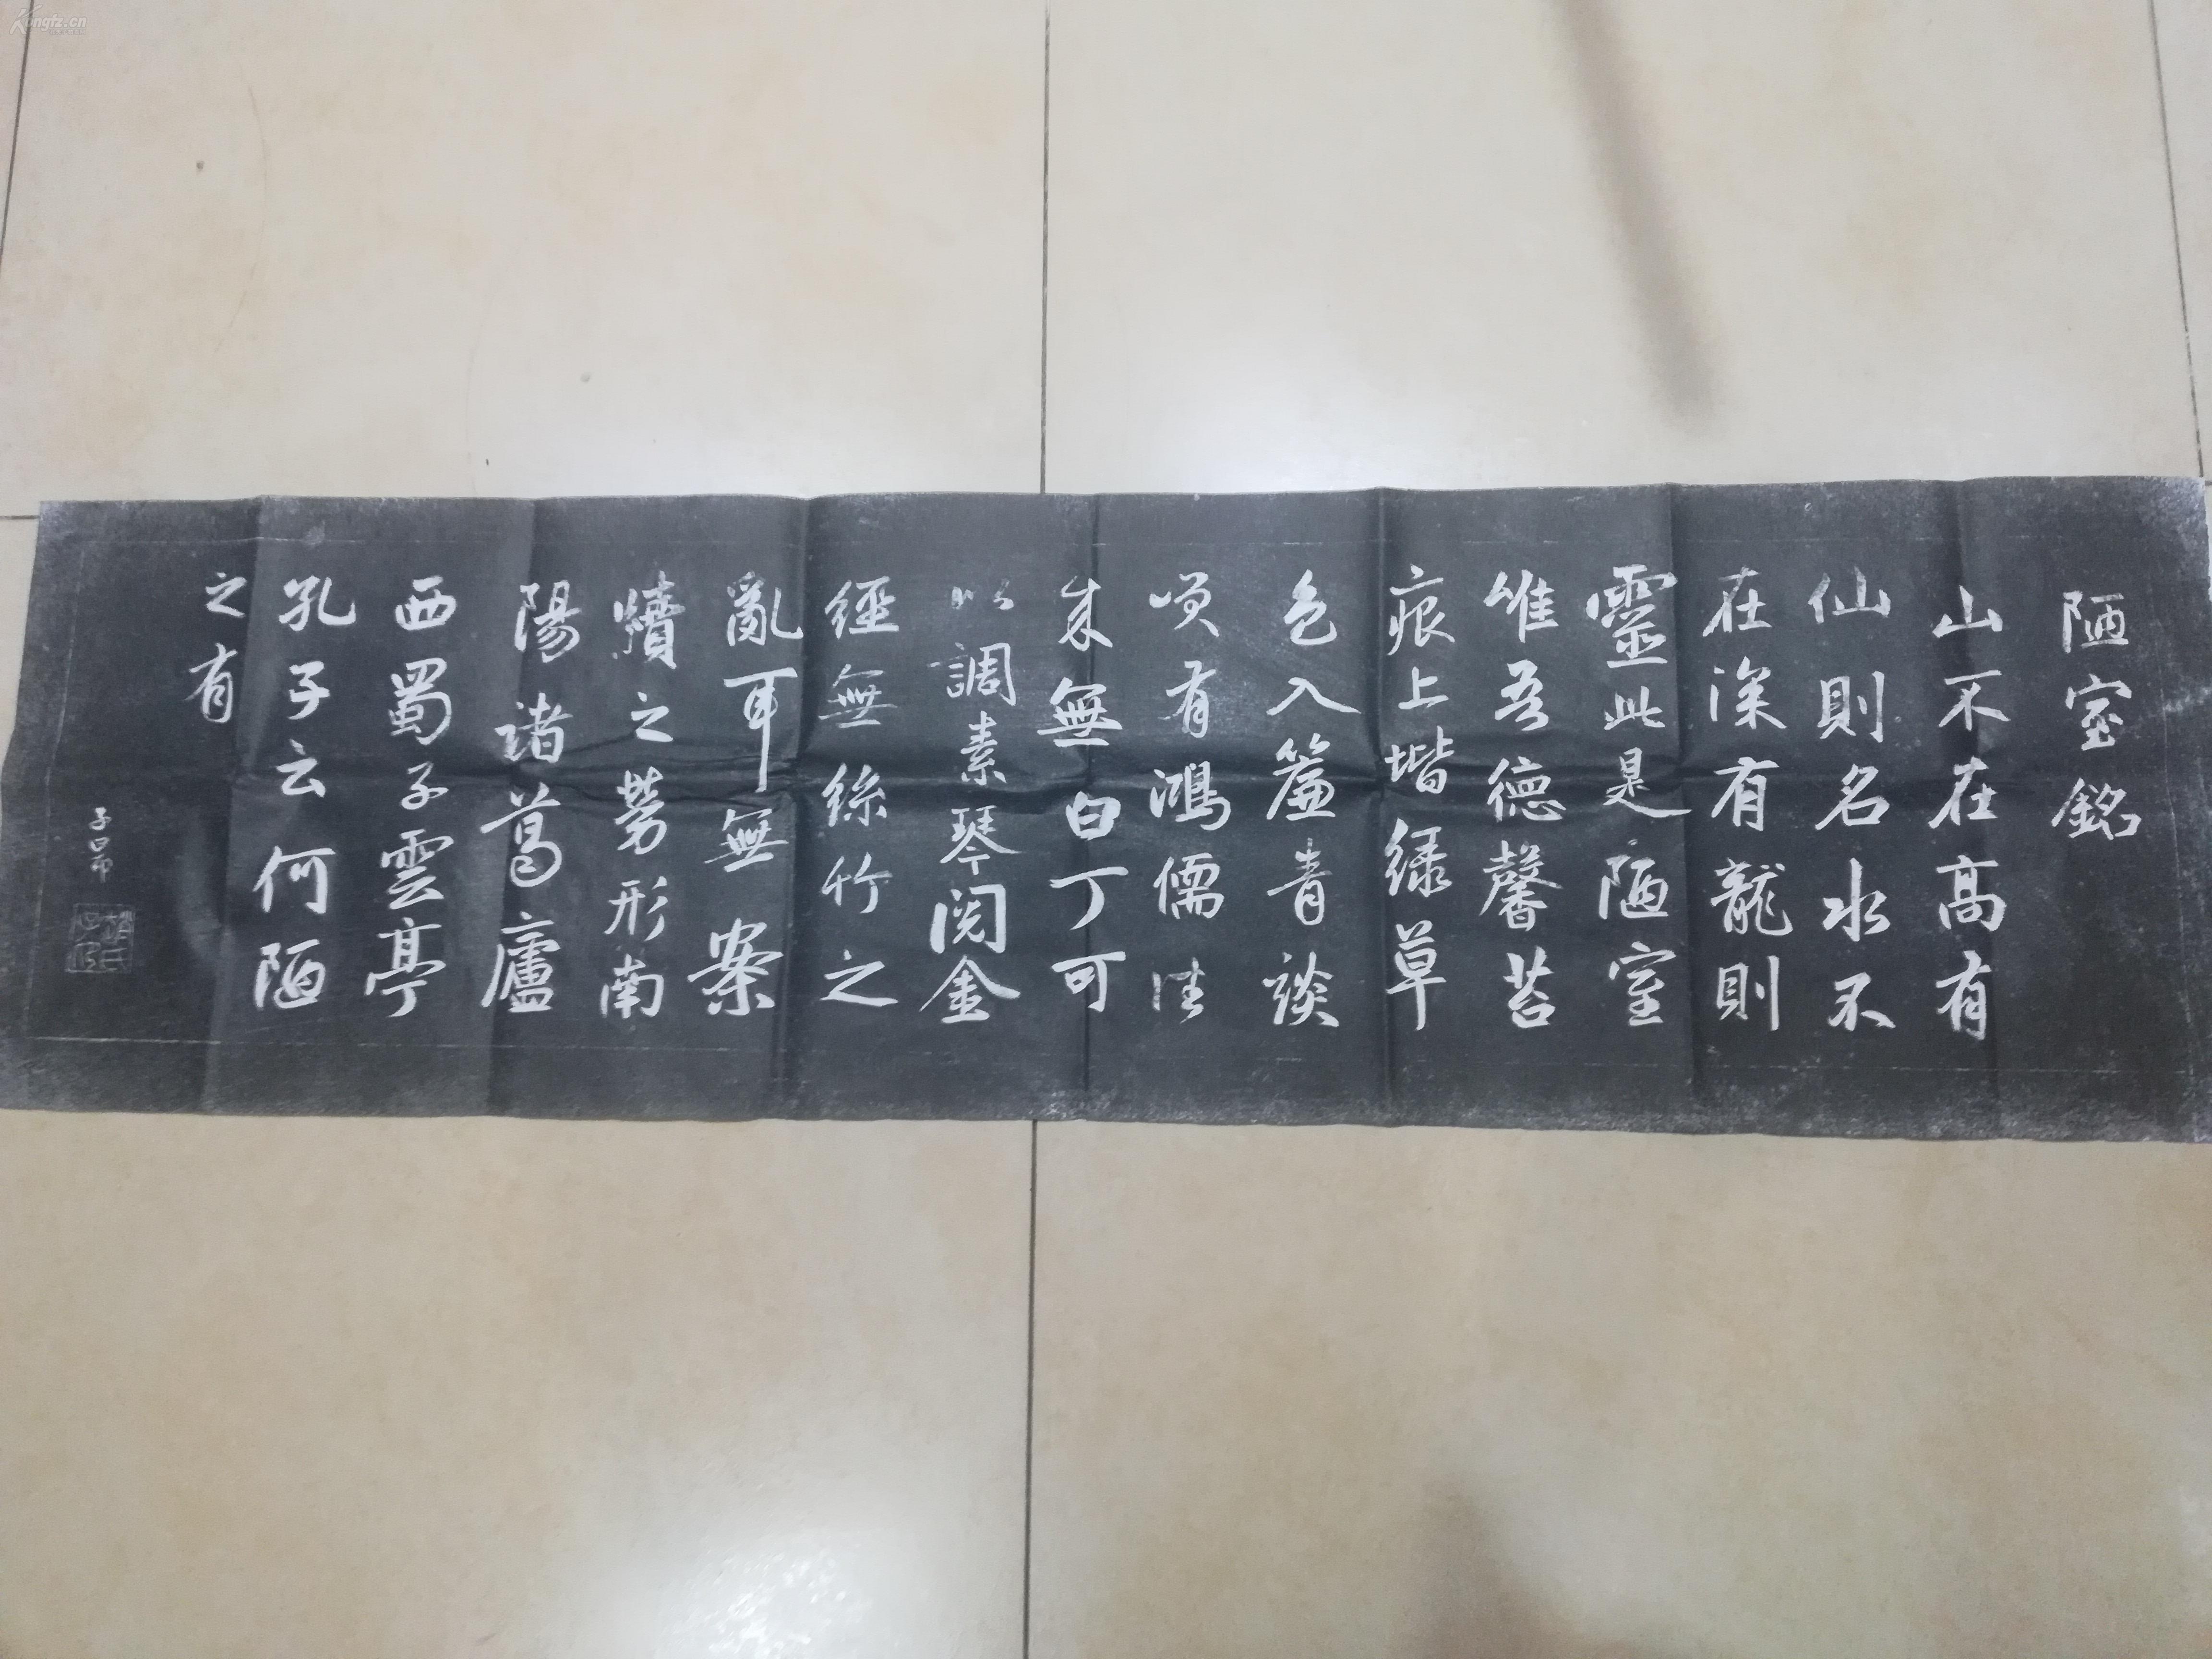 陋室銘
山不在高有
仙則名水不
在深有龍則
靈此是陋室
唯吾德馨苔
痕上堦綠草
色入簾青談
笑有鴻儒往
來無白丁可
以調素琴閱金
經無絲竹之
亂耳無案
牘之勞形南
陽諸葛廬
西蜀子雲亭
孔子云何陋
之有
子昂
Kongfz.cn